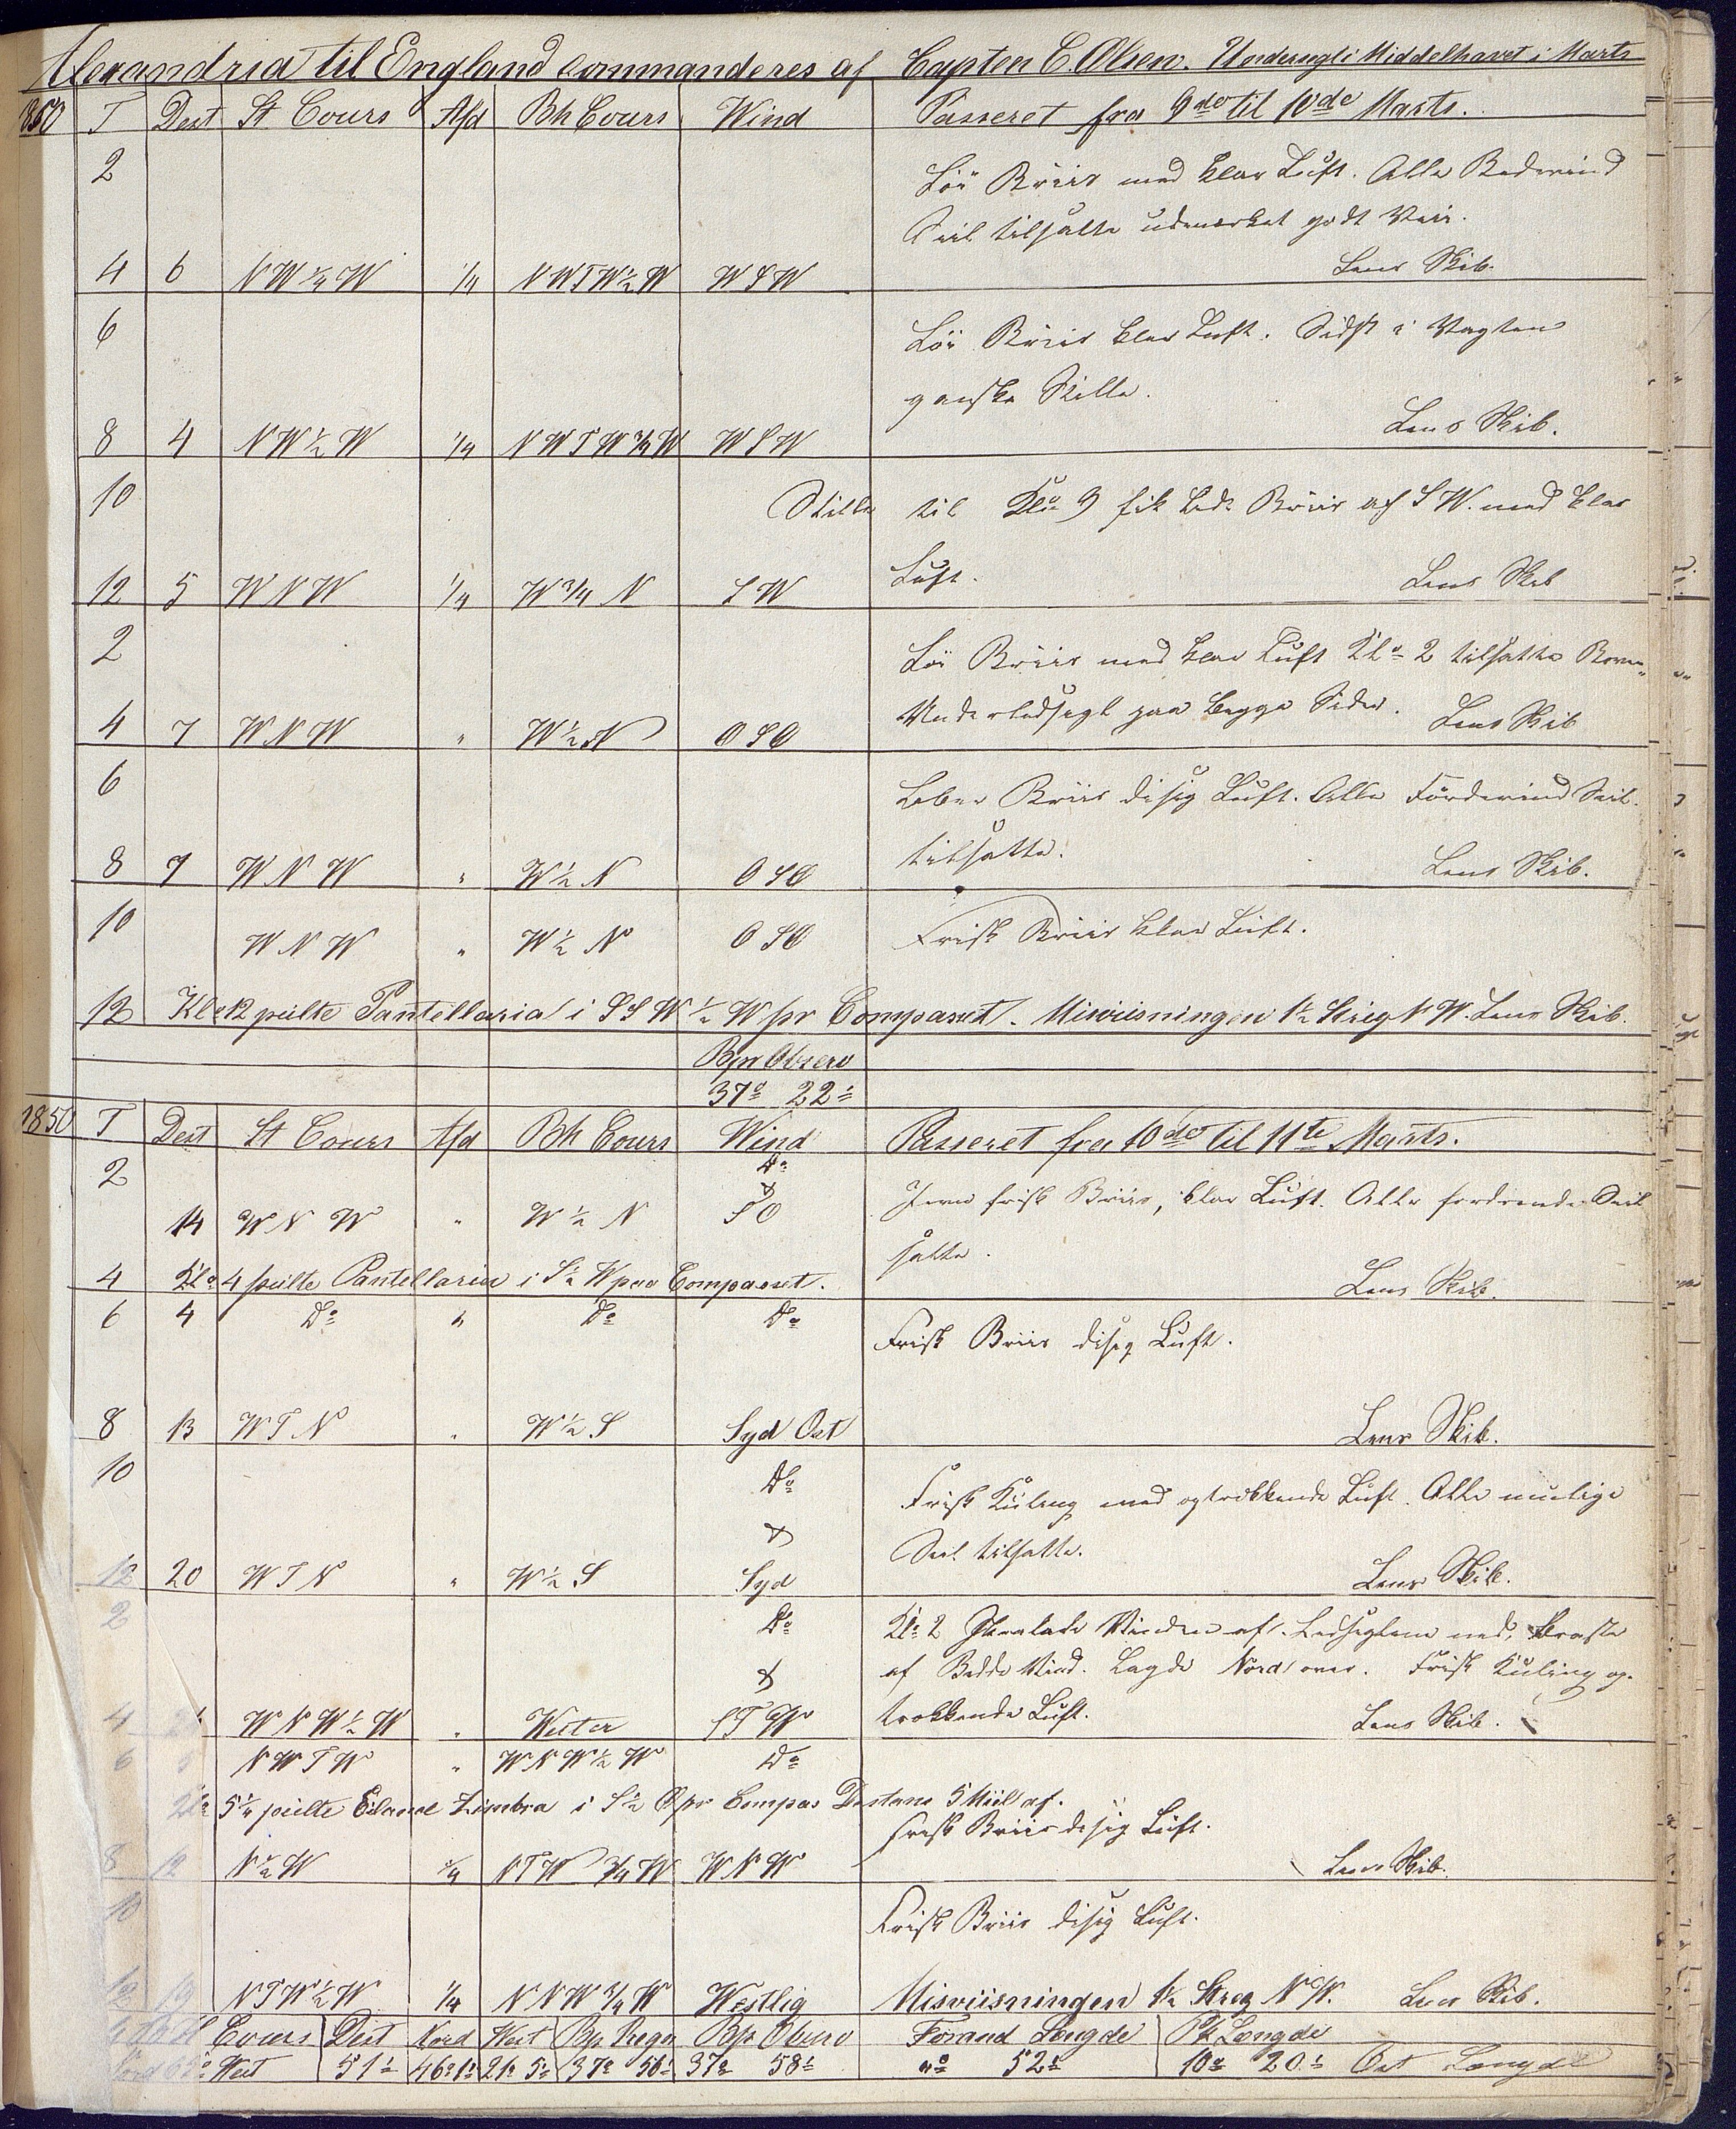 Alexandria til England commanderes af Capten C. Olsen. Undersegl i Middelhavet i Marts
1850 T Dest St Cours Afd Bh Cours Wind Passeret fra 9de til 10de Marts.
2 Löi Briis med klar Luft. Alle Bedevind
Seil tilsatte udmærket godt Veir.
4 6 NW ¼ W ¼ NWTW ½ W WSW Lens Skib.
6 Löi Briis klar Luft. Sidst i Vagten
ganske Stille.
8 4 NW ½ W ¼ NWTW ¾ W WSW Lens Skib.
10 Stille til Klo 9 fik Briis af SW. med klar
12 5 WNW ¼ W ¾ N SW Luft. Lens Skib
2 Löi Briis med klar Luft Klo 2 tilsatte
4 7 WNW " W ½ N OSO paa begge Sider. Lens Skib
6 Laber Briis disig Luft. Alle Fördevind Seil
8 7 WNW " W ½ N OSO tilsatte. Lens Skib.
10 WNW " W ½ N OSO Frisk Briis klar Luft.
12 Klo 12 peilte Pantellaria i SSW ½ W pr Compasset. Misviisningen 1½ Streg NW. Lens Skib.
Bpr Observ
37° 22'
1850 T Dest St Cours Afd Bh Cours Wind Passeret fra 10de til 11te Marts.
2 Do
14 WNW " W ½ N SO Jevn frisk Briis, klar Luft. Alle Seil
satte.
4 Klo 4 peilte Pantellaria i S ½ W paa Compasset. Lens Skib.
6 4 Do " Do Do Frisk Briis disig Luft.
8 13 WTN " W ½ S Syd Ost Lens Skib.
10 Do Frisk Kuling med optrækkende Luft. Alle mulige
Seil tilsatte.
12 20 WTN " W ½ S Syd Lens Skib.
2 Do Klo 2 Skralede Vinden af. ned, braste
af Bedde Vind. Lagde Nord over. Frisk Kuling op-
4 WNW ½ W " Wester STW trækkende Luft. Lens Skib.
6 5 NWTW " WNW ½ W Do
Klo 5¼ peilte Eiland Zimbra i S ½ O pr Compas Distans 5 Miil af.
Frisk Briis disig Luft.
8 12 N ½ W ¼ NTW ¾ W WNW Lens Skib.
10 Frisk Briis disig Luft.
12 19 NTW ½ W ¼ NNW ¾ W Westlig Misviisningen 1½ Streg NW. Lens Skib.
Cours Dist Nord West Bp Regn Bp Observ Forand Længde Længde
West 51' 37° 37° 58' "° 52' 10° 20' Ost Længde